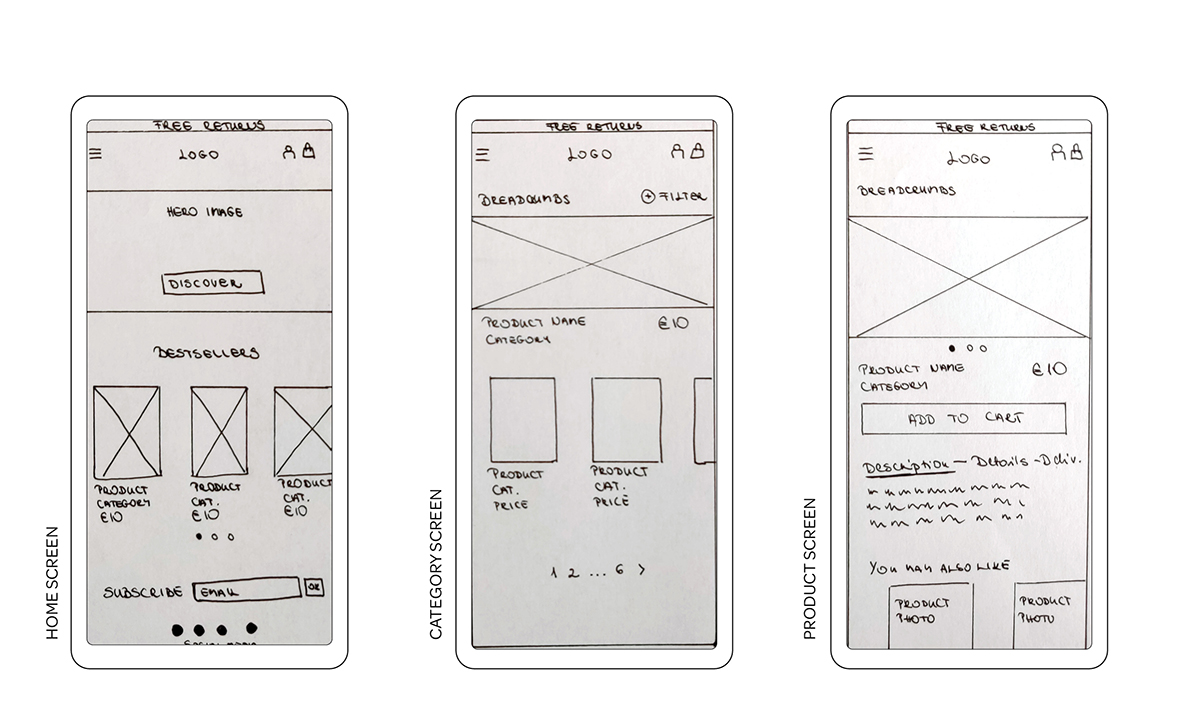 HOME SCREEN
FREE RETURNS
LOGO
HERO IMAGE
DISCOVER
BESTSELLERS
PRODUCT
CATEGORY
€10
PRODUCT
CAT.
€10
PRODUCT
CAT.
€10
SUBSCRIBE EMAIL OK
SOCIAL MEDIA
CATEGORY SCREEN
FREE RETURNS
LOGO
BREADCRUMBS + FILTER
PRODUCT NAME €10
CATEGORY
PRODUCT
CAT.
PRICE
PRODUCT
CAT.
PRICE
1 2 ... 6 >
PRODUCT SCREEN
FREE RETURNS
LOGO
BREADCRUMBS
PRODUCT NAME €10
CATEGORY
ADD TO CART
Description - Details - Deliv.
YOU MAY ALSO LIKE
PRODUCT
PHOTO
PRODUCT
PHOTO